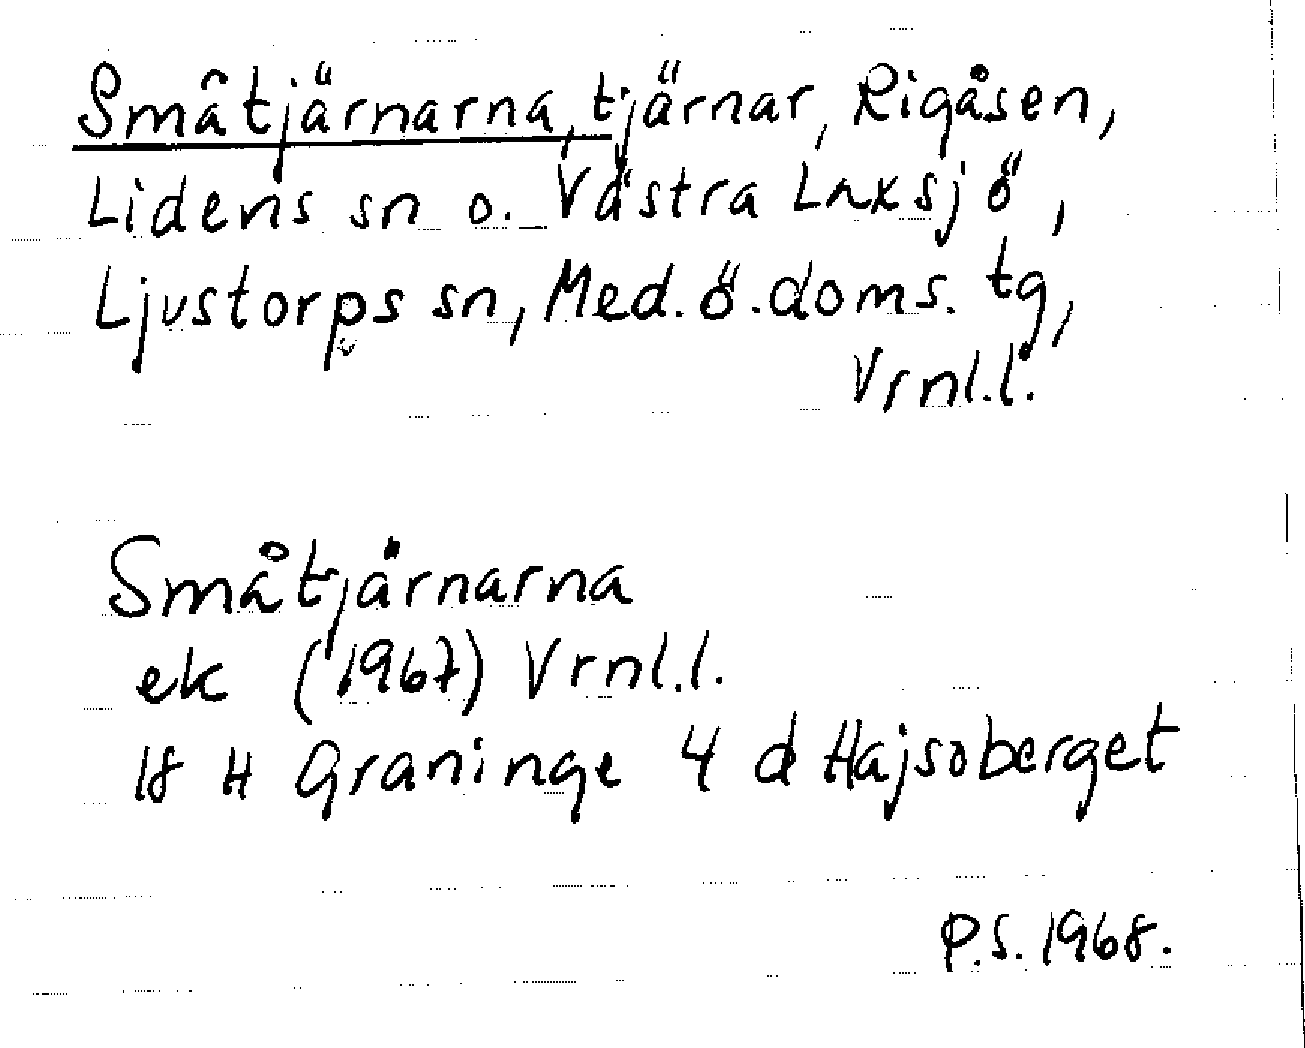 Småtjärnarna, tjärnar, Rigåsen,
Lidens sn o. Västra Laxsjö,
Ljustorps sn, Med. ö. doms. tg,
Vrnl.l.
Småtjärnarna
ek (1967) Vrnl.l.
18 H Graninge 4 d Hajsoberget
P.S. 1968.